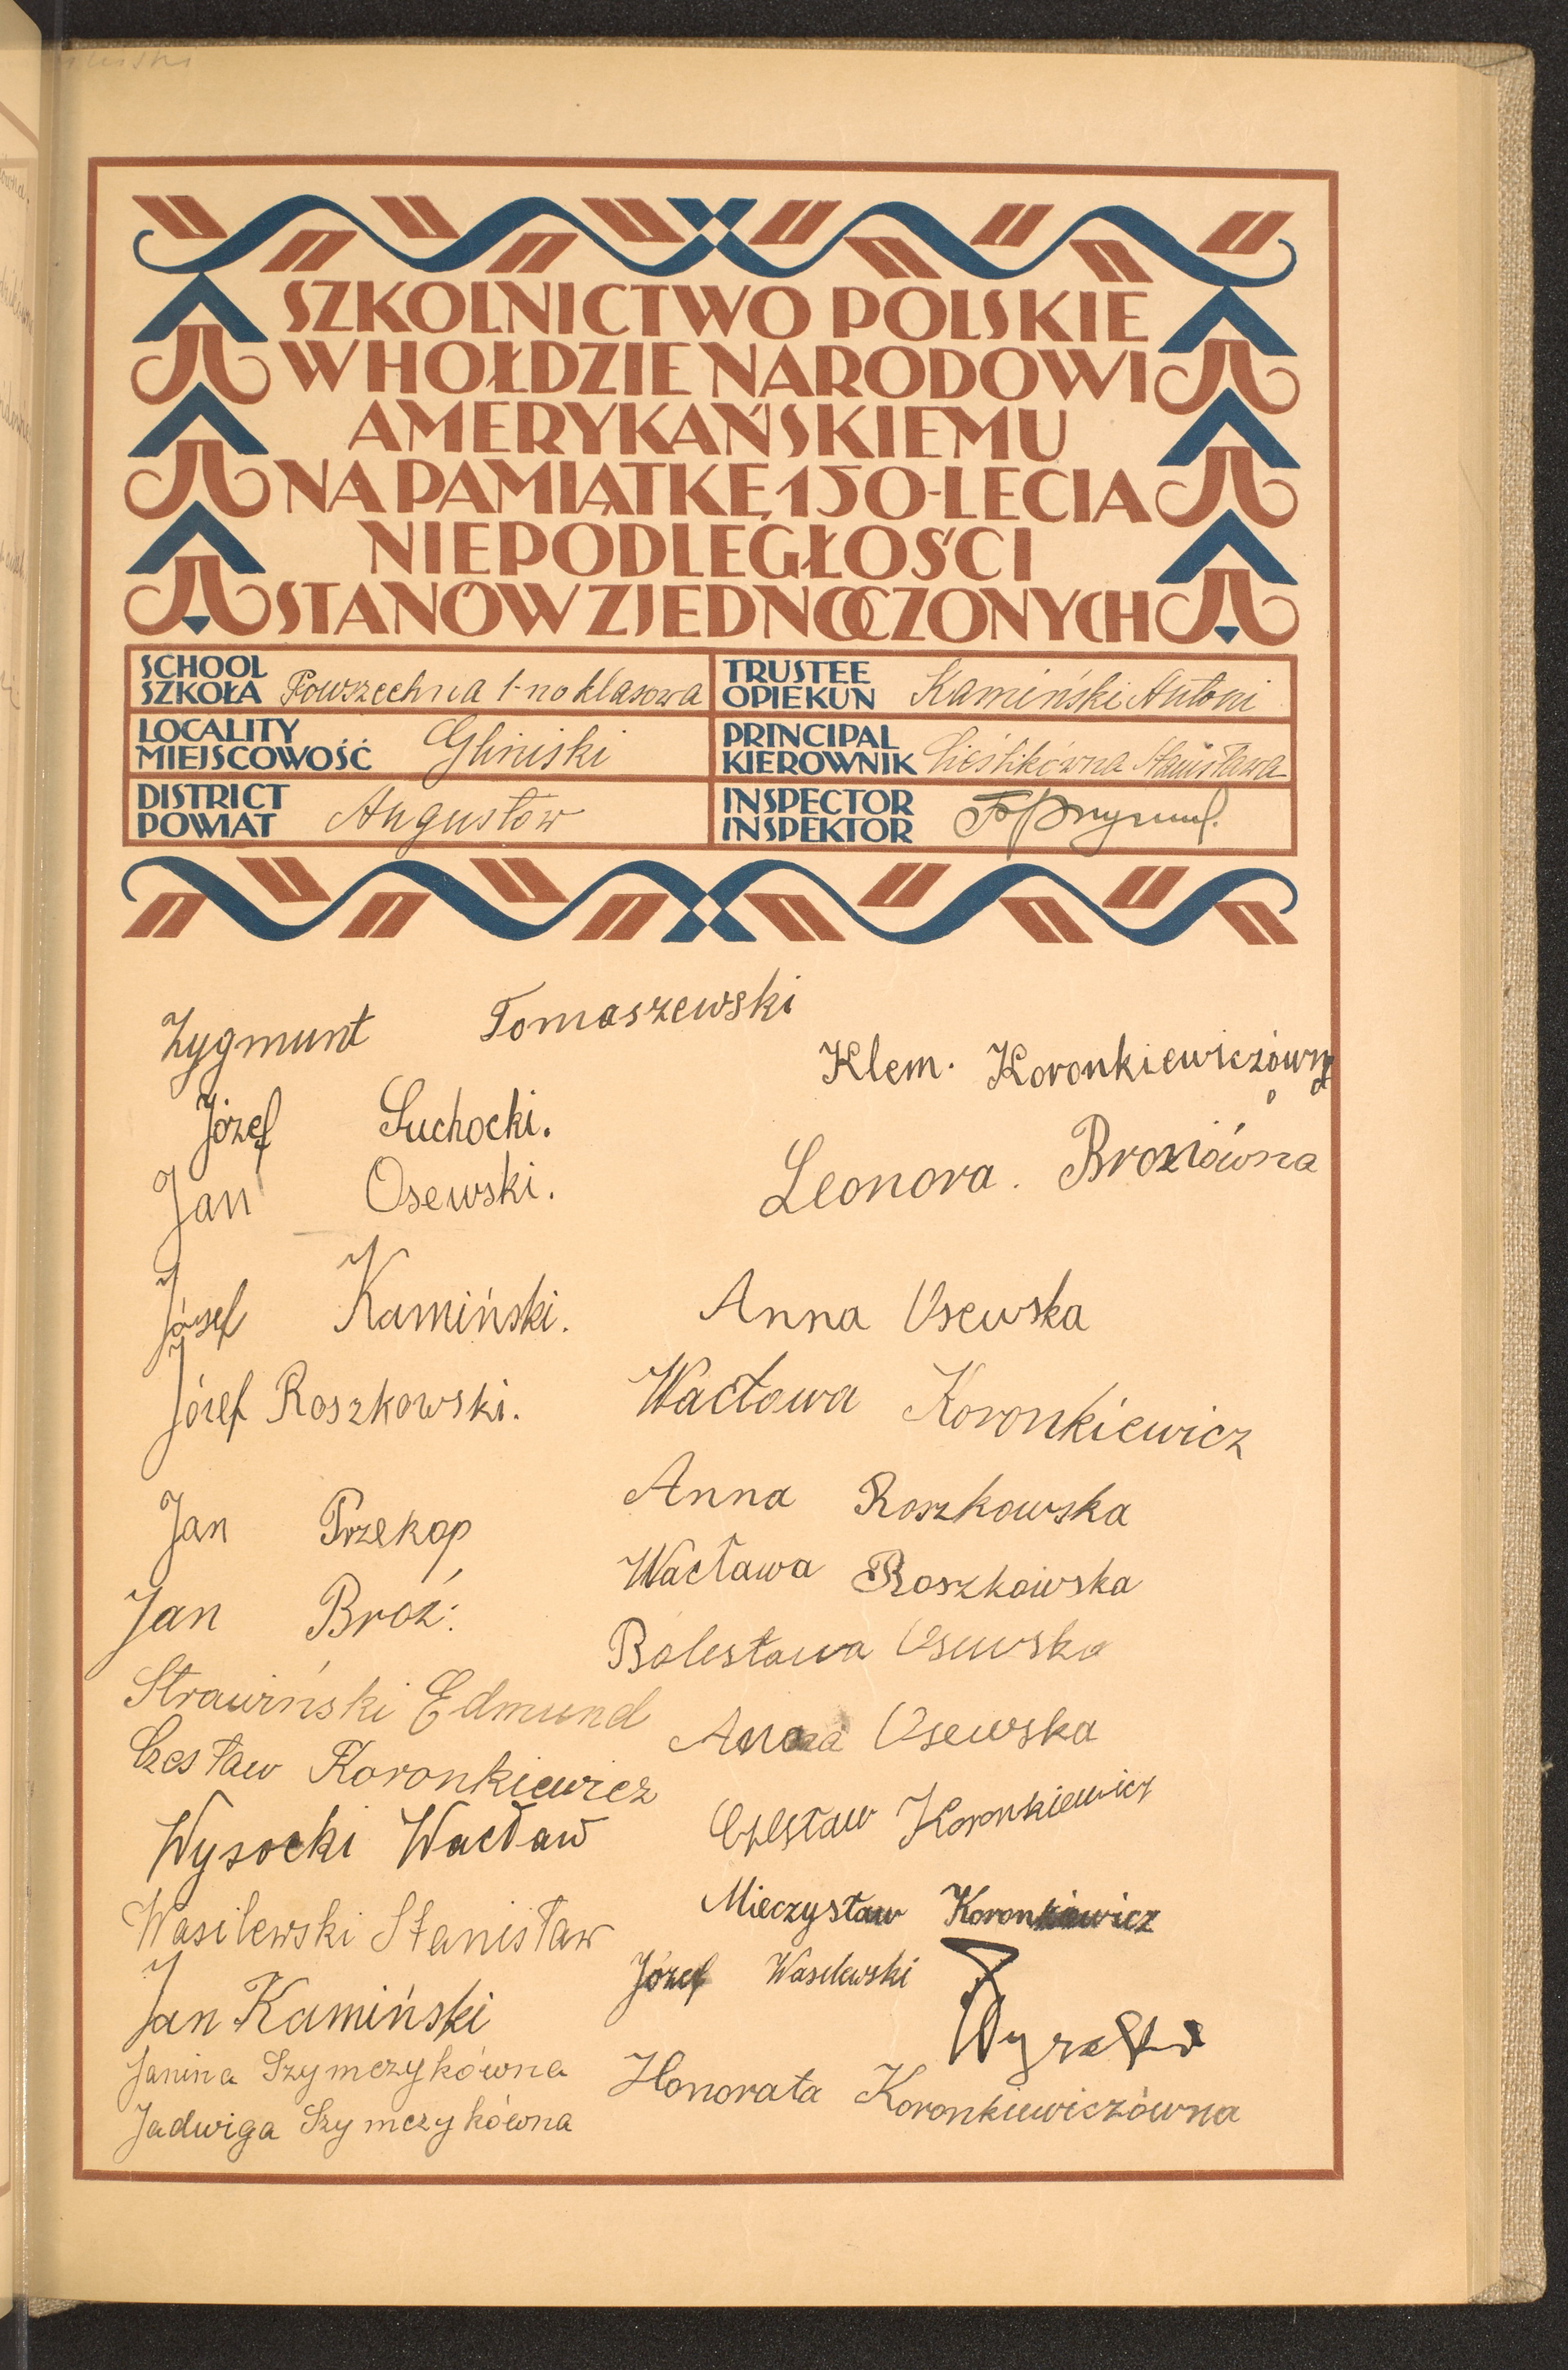 SZKOLNICTWO POLSKIE
W HOŁDZIE NARODOWI
AMERYKAŃSKIEMU
NA PAMIĄTKĘ 150-LECIA
NIEPODLEGŁOŚCI
STANÓW ZJEDNOCZONYCH
SCHOOL
SZKOŁA Powszechna 1-no klasowa
TRUSTEE
OPIEKUN Kamiński Antoni
LOCALITY
MIEJSCOWOŚĆ Gliniski
PRINCIPAL
KIEROWNIK Cieślikówna Stanisława
DISTRICT
POWIAT Augustów
INSPECTOR
INSPEKTOR
Zygmunt Tomaszewski
Józef Suchocki.
Jan Osewski.
Józef Kamiński.
Józef Roszkowski.
Jan Przekop
Jan Broź.
Strawiński Edmund
Czesław Koronkiewicz
Wysocki Wacław
Wasilewski Stanisław
Jan Kamiński
Janina Szymczykówna
Jadwiga Szymczykówna
Klem. Koronkiewiczówna
Leonora. Broziówna
Anna Osewska
Wacława Koronkiewicz
Anna Roszkowska
Wacława Roszkowska
Bolesława Osewska
Anna Osewska
Czesław Koronkiewicz
Mieczysław Koronkiewicz
Józef Wasilewski
Honorata Koronkiewiczówna